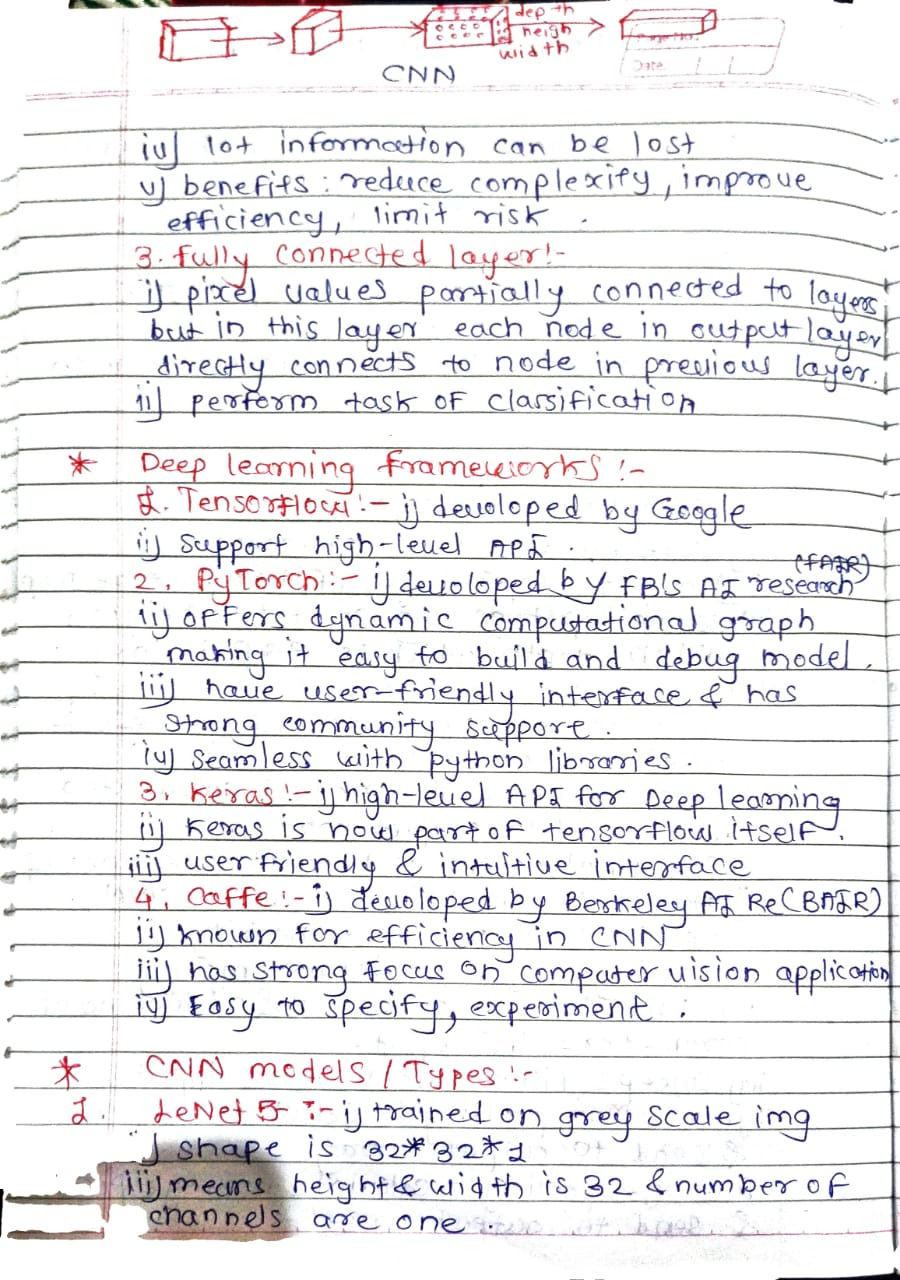 depth
heigh
width
Page No.
Date
CNN
iv) lot information can be lost
v) benefits : reduce complexity, improve
efficiency, limit risk .
3. fully connected layer:-
i) pixel values partially connected to layers
but in this layer each node in output layer
directly connects to node in previous layer.
ii) perform task of classification
* Deep learning frameworks :-
1. Tensorflow :- i) devoloped by Google
ii) Support high-level API .
(fAIR)
2. PyTorch :- i) devoloped by FB's AI research
ii) offers dynamic computational graph
making it easy to build and debug model.
iii) have user-friendly interface & has
strong community support.
iv) seamless with python libraries .
3. Keras :- i) high-level API for Deep learning
ii) Keras is now part of tensorflow itself.
iii) user friendly & intuitive interface
4. Caffe :- i) devoloped by Berkeley AI Re(BAIR)
ii) known for efficiency in CNN
iii) has strong focus on computer vision application
iv) Easy to specify, experiment .
* CNN models / Types :-
1. LeNet 5 :- i) trained on grey scale img
) shape is 32*32*1
iii) means height & width is 32 & number of
channels are one .